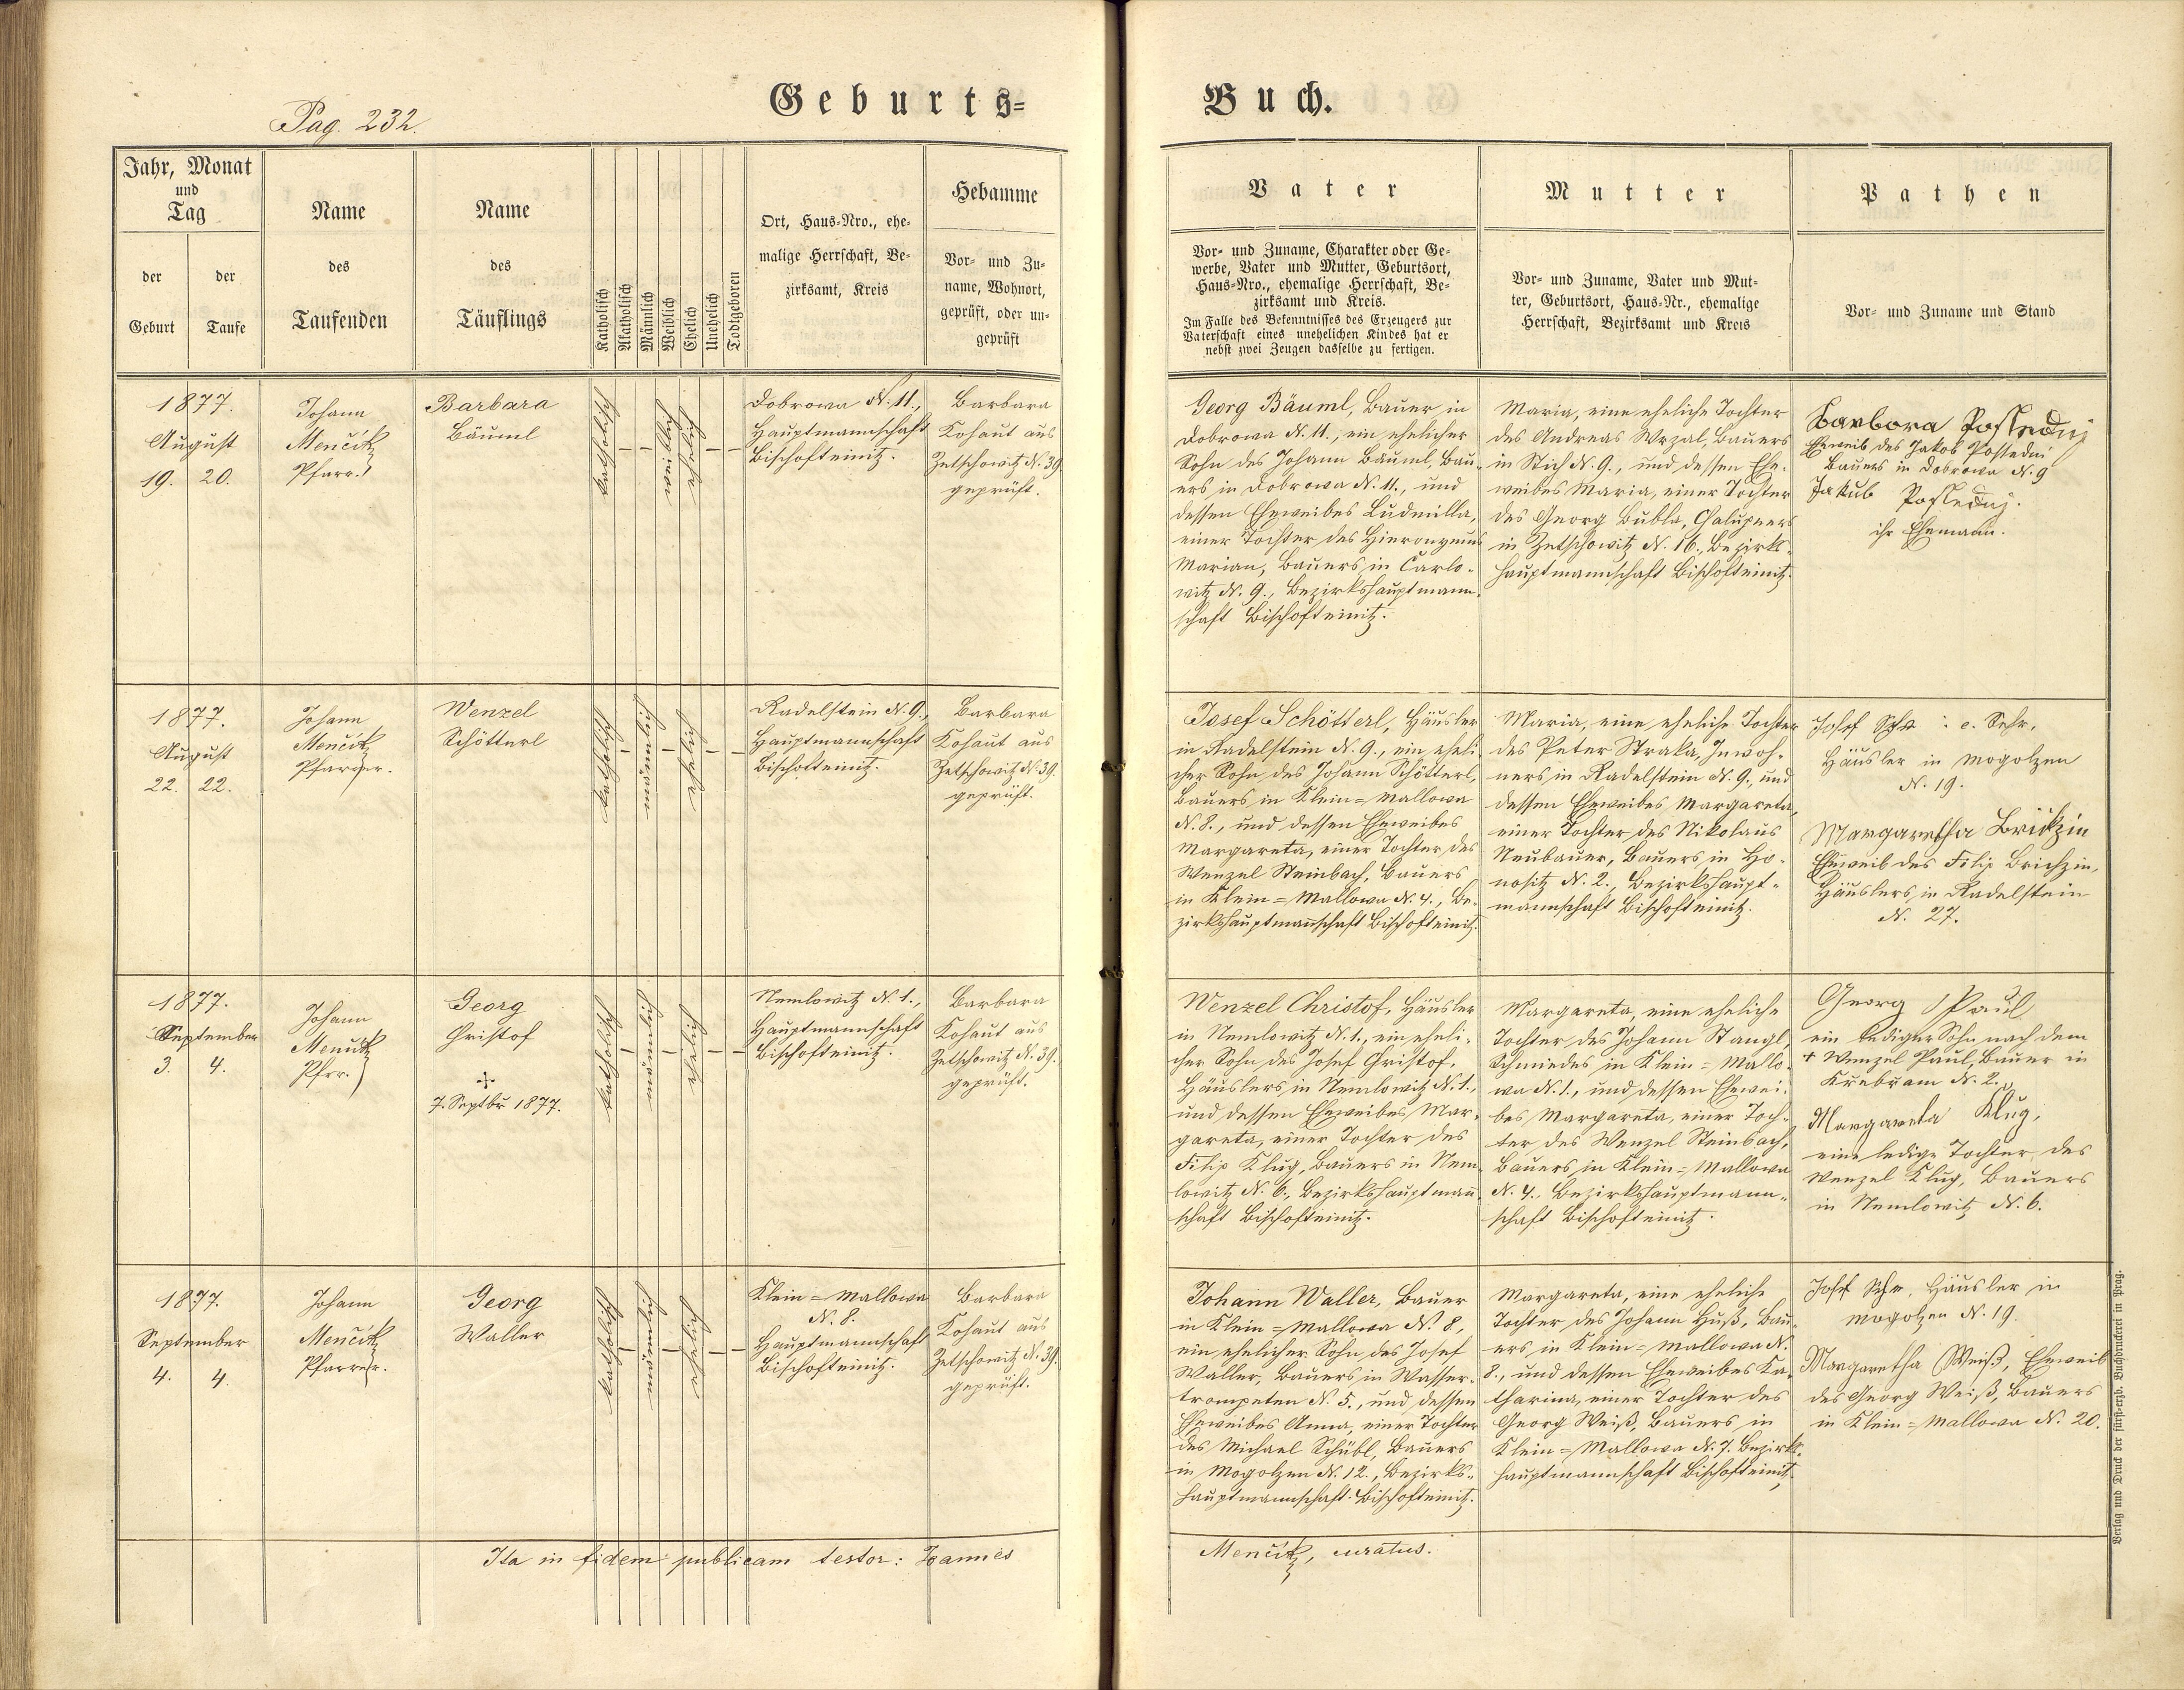 Pag. 232.
Geburts-
Buch.
Jahr, Monat
und
Tag
der
Geburt
der
Taufe
Name
des
Taufenden
Name
des
Täuflings
Katholisch
Akatholisch
Männlich
Weiblich
Ehelich
Unehelich
Todtgeboren
Ort, Haus-Nro., ehe-
malige Herrschaft, Be-
zirksamt, Kreis
Hebamme
Vor- und Zu-
name, Wohnort,
geprüft, oder un-
geprüft
Vater
Vor- und Zuname, Charakter oder Ge-
werbe, Vater und Mutter, Geburtsort,
Haus-Nro., ehemalige Herrschaft, Be-
zirksamt und Kreis.
Im Falle des Bekenntnisses des Erzeugers zur
Vaterschaft eines unehelichen Kindes hat er
nebst zwei Zeugen dasselbe zu fertigen.
Mutter
Vor- und Zuname, Vater und Mut-
ter, Geburtsort, Haus-Nr., ehemalige
Herrschaft, Bezirksamt und Kreis
Pathen
Vor- und Zuname und Stand
1877.
August
19. 20.
Johann
Menčik
Pfarr.
Barbara
Bäuml
katholisch
–
–
weiblich
ehelich
–
–
Dobrowa N. 11.,
Hauptmannschaft
Bischofteinitz.
Barbara
Kohaut aus
Zetschowitz N. 39.
geprüft.
Georg Bäuml, Bauer in
Dobrowa N. 11., ein ehelicher
Sohn des Johann Bäuml, Bau-
ers in Dobrowa N. 11., und
dessen Eheweibes Ludmilla,
einer Tochter des Hieronymus
Marian, Bauers in Carlo-
witz N. 9., Bezirkshauptmann-
schaft Bischofteinitz.
Maria, eine eheliche Tochter
des Andreas Wrzal, Bauers
in Stich N. 9., und dessen Ehe-
weibes Maria, einer Tochter
des Georg Bubla, Chalupners
in Zetschowitz N. 16., Bezirks-
hauptmannschaft Bischofteinitz.
Barbora Posledni
Eheweib des Jakob Posledni
Bauers in Dobrowa N. 9
Jakub Poslednj.
ihr Ehemann.
1877.
August
22. 22.
Johann
Menčik
Pfarrer.
Wenzel
Schötterl
katholisch
–
männlich
–
ehelich
–
–
Radelstein N. 9.,
Hauptmannschaft
Bischofteinitz.
Barbara
Kohaut aus
Zetschowitz N. 39.
geprüft.
Josef Schötterl, Häusler
in Radelstein N. 9., ein eheli-
cher Sohn des Johann Schötterl,
Bauers in Klein=Mallowa
N. 8., und dessen Eheweibes
Margareta, einer Tochter des
Wenzel Steinbach, Bauers
in Klein=Mallowa N. 4., Be-
zirkshauptmannschaft Bischofteinitz.
Maria, eine eheliche Tochter
des Peter Straka, Inwoh-
ners in Radelstein N. 9., und
dessen Eheweibes Margareta,
einer Tochter des Nikolaus
Neubauer, Bauers in Ho-
nositz N. 2., Bezirkshaupt-
mannschaft Bischofteinitz.
Josef
Häusler in Mogolzen
N. 19.
Margaretha Brichzin
Eheweib des Filip Brichzin,
Häuslers in Radelstein
N. 27.
1877.
September
3. 4.
Johann
Menčik
Pfrr.
Georg
Christof
+
7. Septbr 1877.
katholisch
–
männlich
–
ehelich
–
–
Nemlowitz N. 1.,
Hauptmannschaft
Bischofteinitz.
Barbara
Kohaut aus
Zetschowitz N. 39.
geprüft.
Wenzel Christof, Häusler
in Nemlowitz N. 1., ein eheli-
cher Sohn des Josef Christof,
Häuslers in Nemlowitz N. 1.,
und dessen Eheweibes Mar-
gareta, einer Tochter des
Filip Klug, Bauers in Nem-
lowitz N. 6., Bezirkshauptmann-
schaft Bischofteinitz.
Margareta, eine eheliche
Tochter des Johann Stangl,
Schmiedes in Klein=Mallo-
wa N. 1., und dessen Ehewei-
bes Margareta, einer Toch-
ter des Wenzel Steinbach,
Bauers in Klein=Mallowa
N. 4., Bezirkshauptmann-
schaft Bischofteinitz.
Georg Paul
ein lediger Sohn nach dem
+ Wenzel Paul, Bauer in
Krebram N. 2.
Margareta Klug,
eine ledige Tochter des
Wenzel Klug, Bauers
in Nemlowitz N. 6.
1877.
September
4. 4.
Johann
Menčik
Pfarrer.
Georg
Waller
katholisch
–
männlich
–
ehelich
–
–
Klein=Mallowa
N. 8.
Hauptmannschaft
Bischofteinitz.
Barbara
Kohaut aus
Zetschowitz N. 39.
geprüft.
Johann Waller, Bauer
in Klein=Mallowa N. 8.,
ein ehelicher Sohn des Josef
Waller, Bauers in Wasser-
trompeten N. 5., und dessen
Eheweibes Anna, einer Tochter
des Michael Schübl, Bauers
in Mogolzen N. 12., Bezirks-
hauptmannschaft Bischofteinitz.
Margareta, eine eheliche
Tochter des Johann Huß, Bau-
ers in Klein=Mallowa N.
8., und dessen Eheweibes Ka-
tharina, einer Tochter des
Georg Weiß, Bauers in
Klein=Mallowa N. 7. Bezirks-
hauptmannschaft Bischofteinitz.
Josef Häusler in
Mogolzen N. 19.
Margaretha Weiß, Eheweib
des Georg Weiß, Bauers
in Klein=Mallowa N. 20.
Ita in fidem publicam testor: Joannes
Menčik, curatus.
Verlag und Druck der fürst-erzb. Buchdruckerei in Prag.